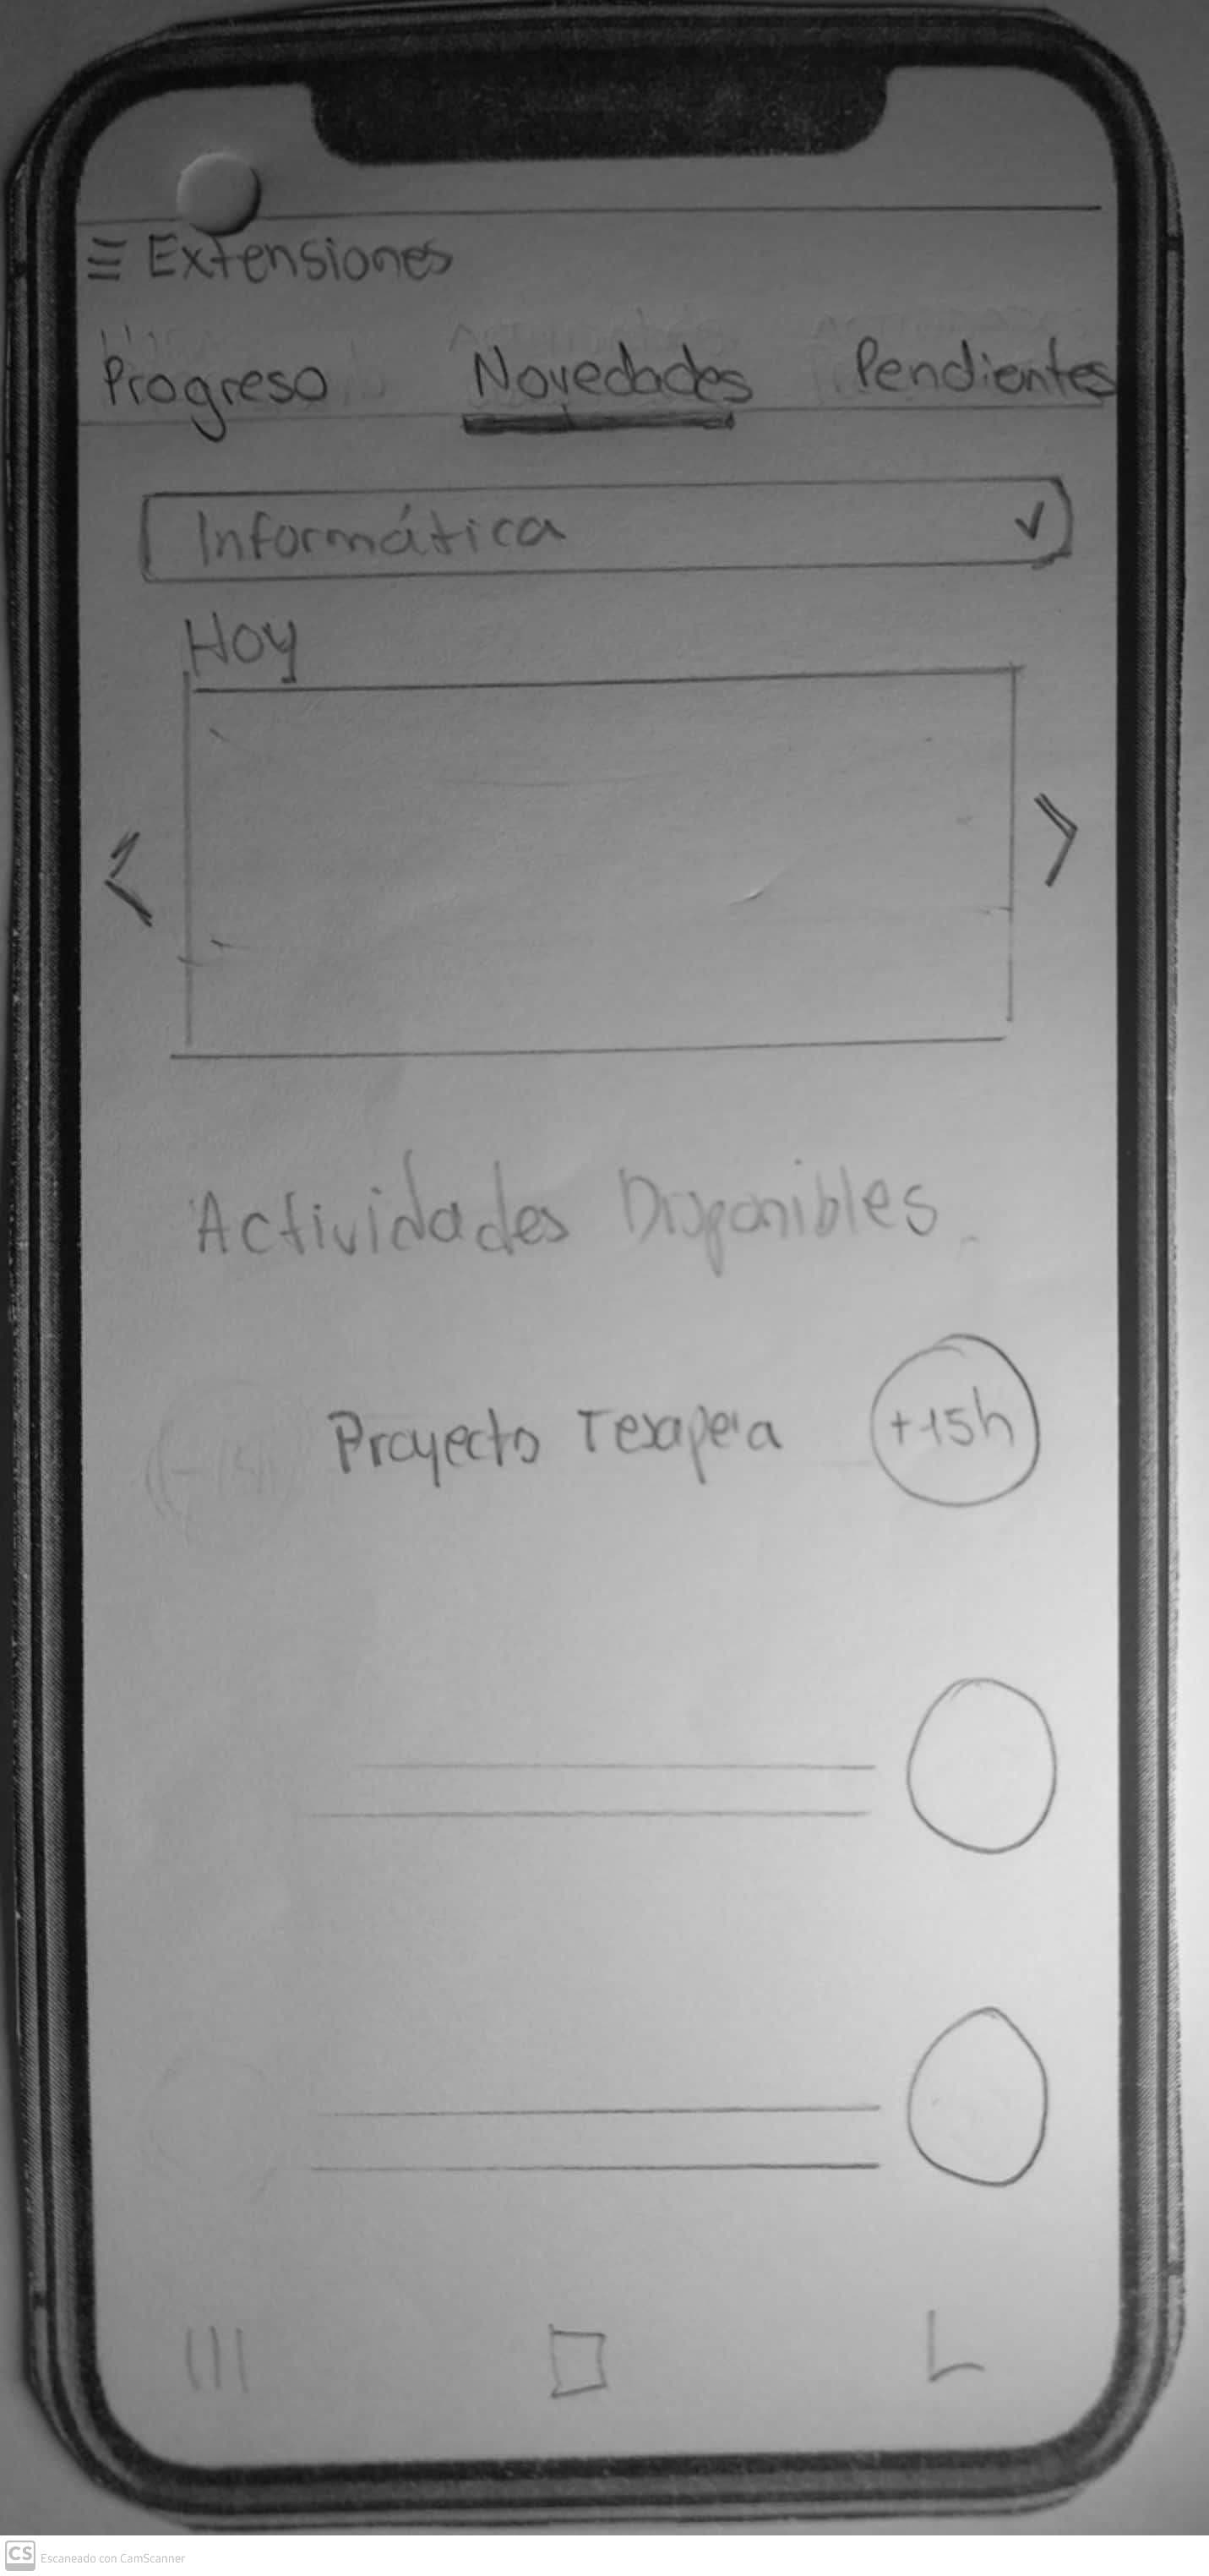 Extensiones
Progreso Novedades Pendientes
Informática
Hoy
Actividades Disponibles
Proyecto
+15h
CS Escaneado con CamScanner